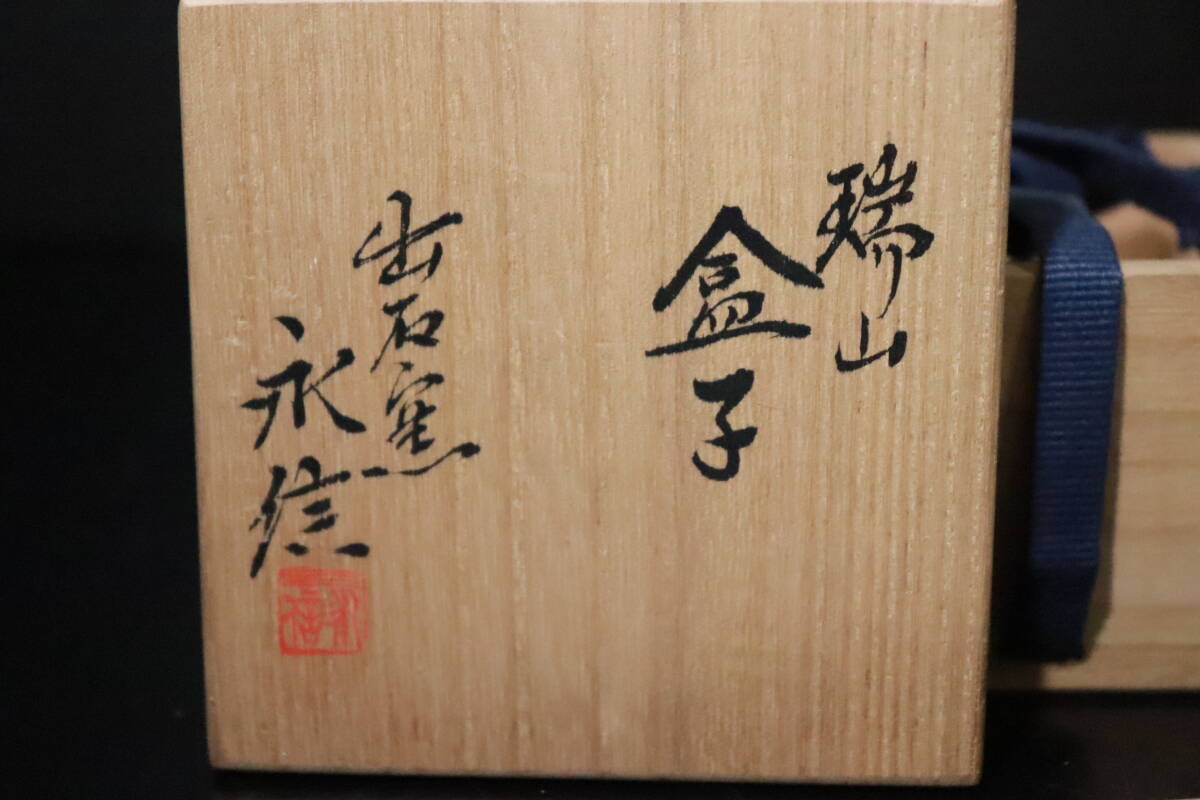 瑞山
盒子
出石窯
永信
永信